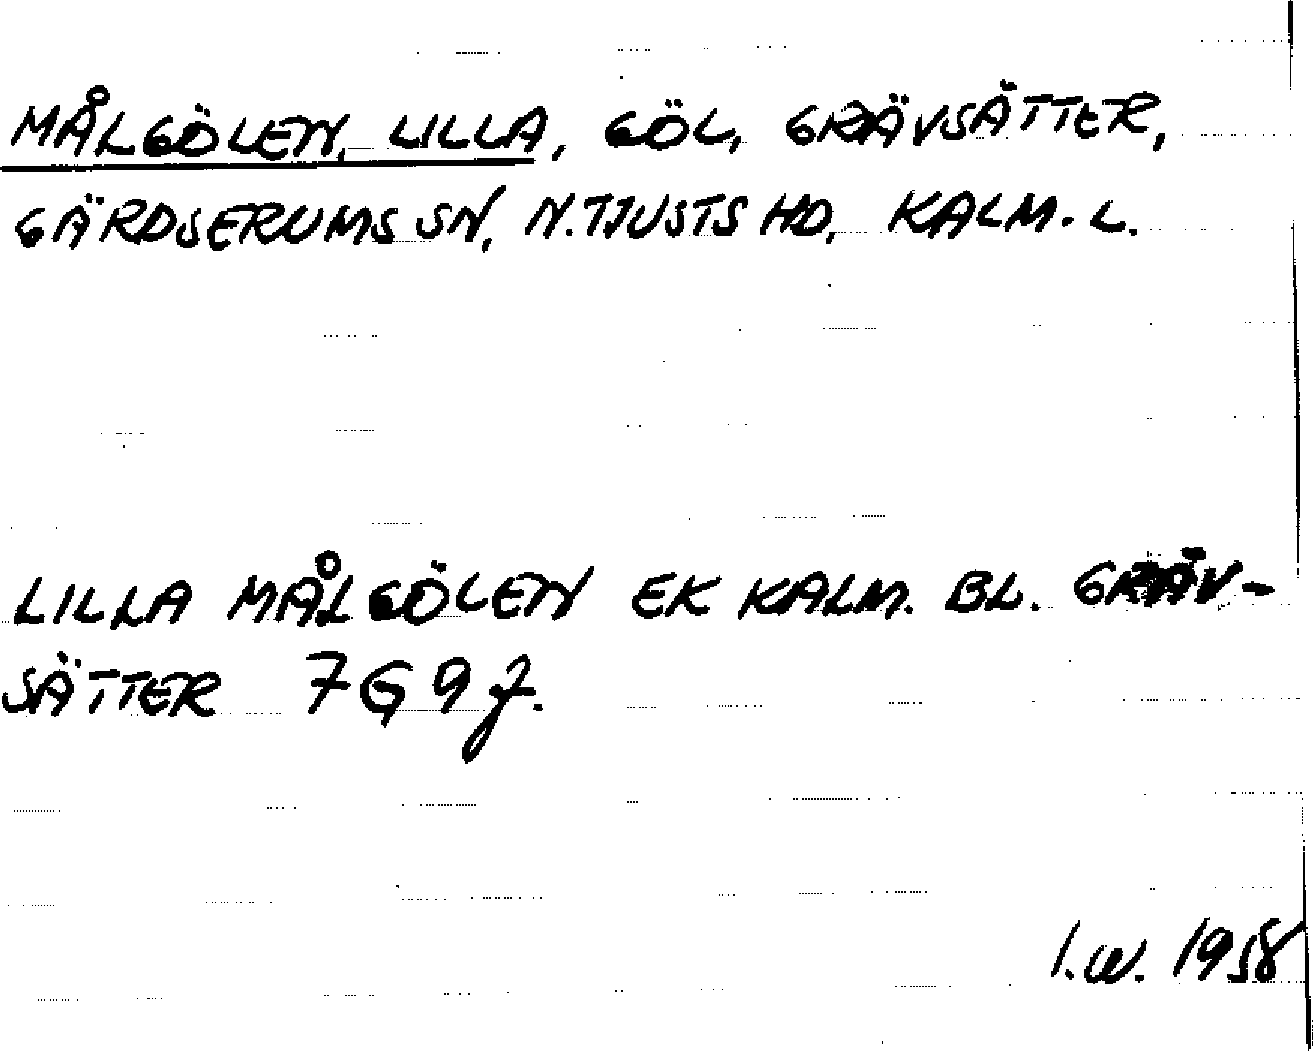 MÅLGÖLEN, LILLA, GÖL, GRÄVSÄTTER,
GÄRDSERUMS SN, N. TJUSTS HD, KALM. L.
LILLA MÅLGÖLEN EK KALM. BL. GRÄV-
SÄTTER 7G9j.
I.W. 1958